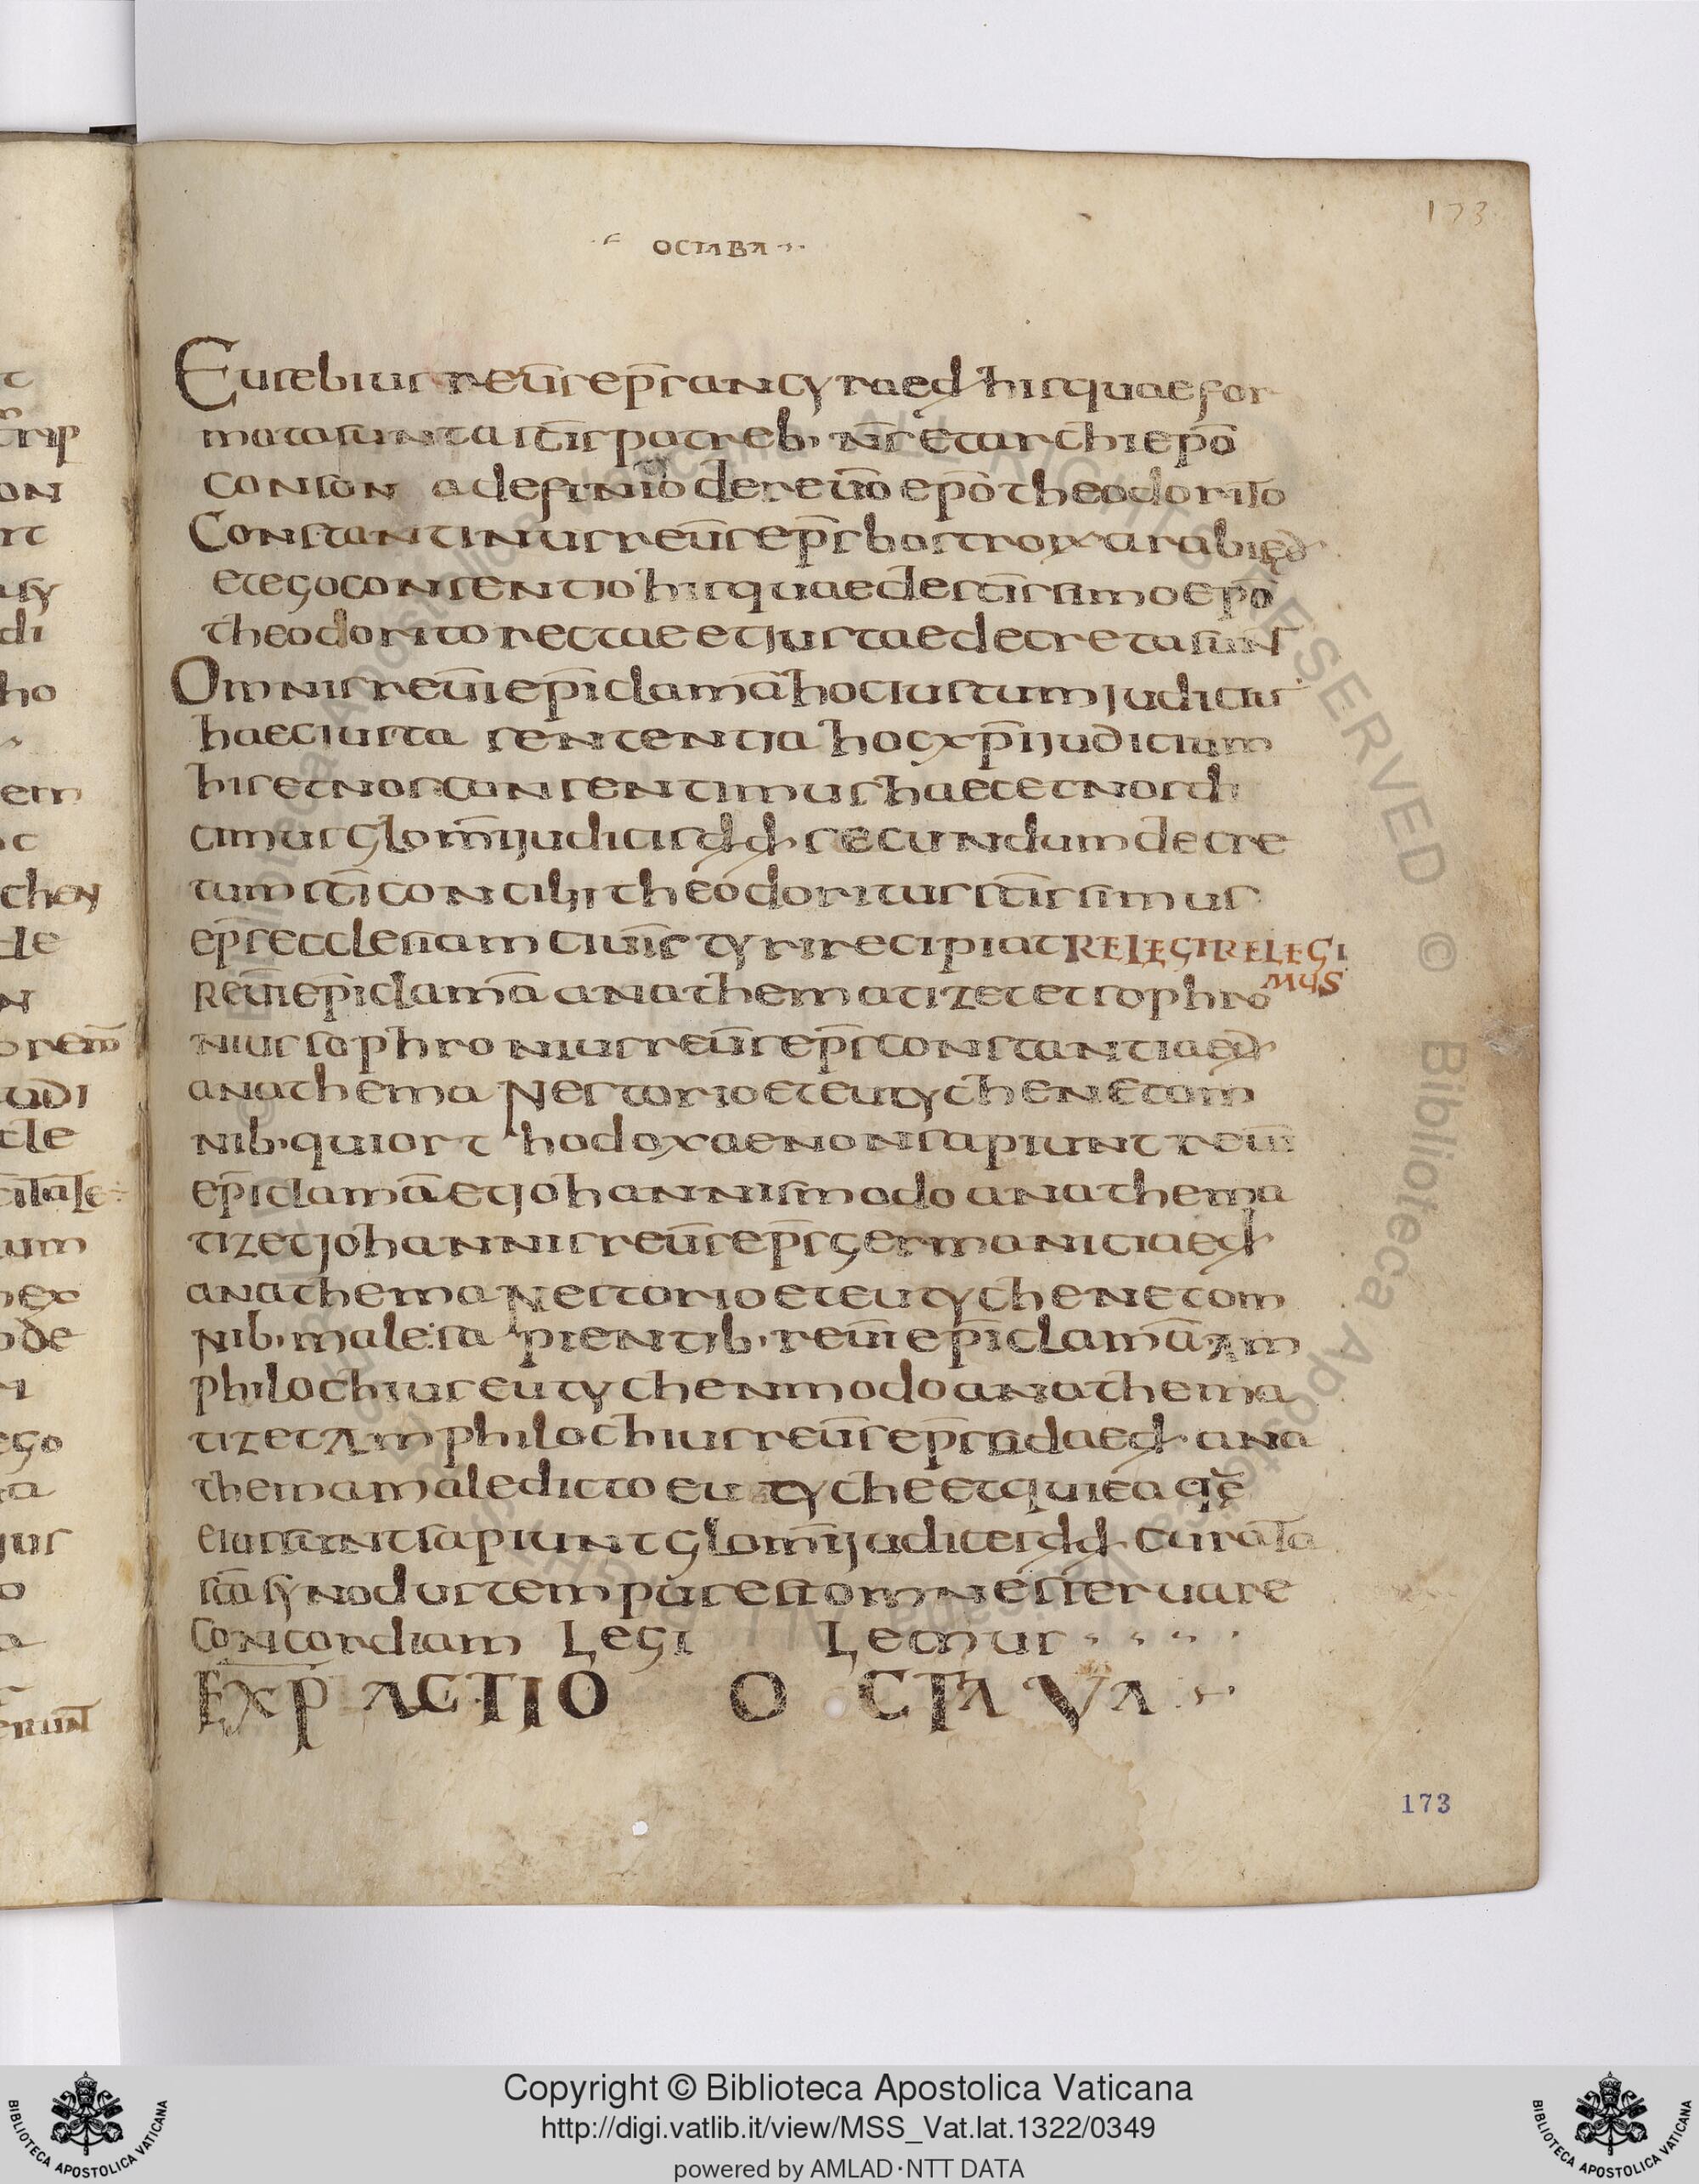 173
OCTABA
Eusebius reūs ep̄s ancyrae d̄ his quae for
mata sunt a sc̄is patrib· n̄s et archiepō
conson a definiō de reūo epō theodorito
Constantinus reūs ep̄s bostron arabię d̄
et ego consentio his quae de sc̄issimo epō
theodorito recte et iustae decreta sunt
Omnis reūi ep̄i clamā hoc iustum judiciū
haec iusta sententia hoc xp̄i judicium
his et nos consentimus haec et nos di
cimus glom̄i judicis dd̄ secundum decre
tum sc̄i concilii theodoritus sc̄issimus
ep̄s ecclesiam ciuīs tyri recipiat RELEGI RELEGI
MUS
Reūi ep̄i clamā anathematizet et sophro
nius sophronius reūs ep̄s constantiae d̄
anathema Nestorio et eutychen et om
nib· qui orthodoxae non sapiunt reūi
ep̄i clamā et johannis modo anathema
tizet johannis reūs ep̄s germaniciae d̄
anathema Nestorio et eutychen et om
nib· male sapientib· reūi ep̄i clamā am
philochius eutychen modo anathema
tizet Amphilochius reūs ep̄s sidae d̄ ana
thema maledicto eutyche et qui ea quę
eius sunt sapiunt glom̄i judices dd̄ curāto
sc̄a synodus tempus est omnes seruare
Concordiam Legi Legimus
EXP̄ ACTIO OCTAVA
173
Copyright © Biblioteca Apostolica Vaticana
http://digi.vatlib.it/view/MSS_Vat.lat.1322/0349
powered by AMLAD·NTT DATA
BIBLIOTECA APOSTOLICA VATICANA
BIBLIOTECA APOSTOLICA VATICANA